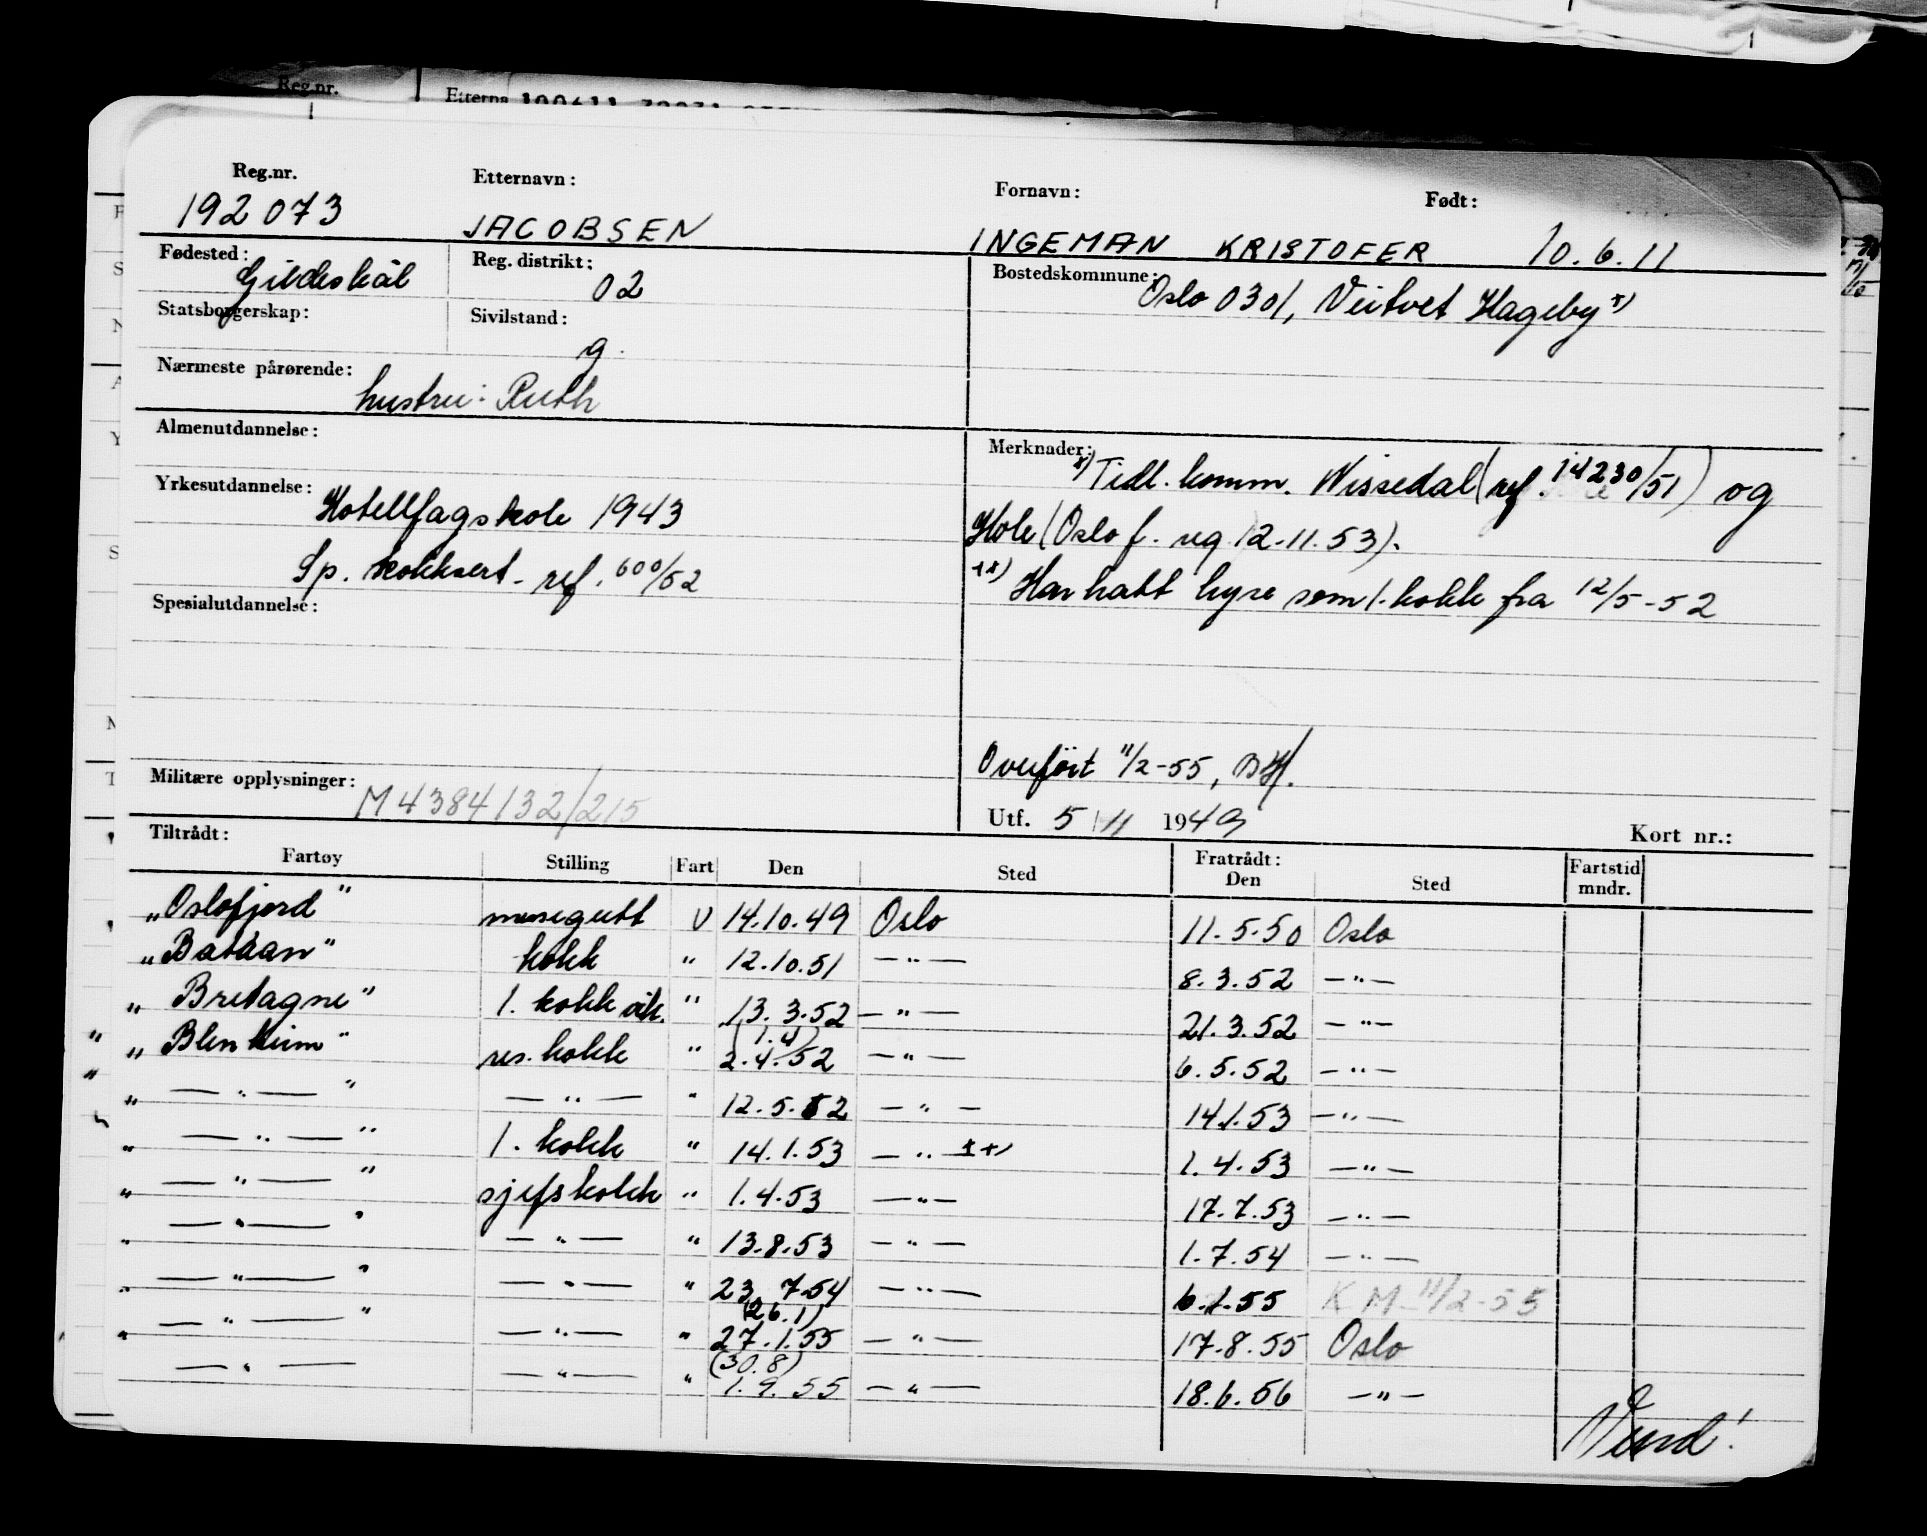 Reg.nr. Etterna
Reg.nr. Etternavn: Fornavn: Født:
192073 JACOBSEN INGEMAN KRISTOFER 10.6.11
Fødested: Gildeskål Reg. distrikt: 02 Bostedskommune: Oslo 0301, Veitvet Hageby x)
Statsborgerskap: Sivilstand: g.
Nærmeste pårørende: hustru: Ruth
Almenutdannelse:
Merknader: x) Tidl. komm. Nissedal (ref. 14230/51) og
Hole (Oslo f. reg 12.11.53).
xx) Har hatt hyre som 1. kokk fra 12/5-52
Yrkesutdannelse: Hotellfagskole 1943
Sp. kokksert. ref. 600/52
Spesialutdannelse:
Overført 11/2-55, BH.
Militære opplysninger: M4384132/215
Utf. 5/11 1949 Kort nr.:
Tiltrådt: Fratrådt:
Fartøy Stilling Fart Den Sted Den Sted Fartstid mndr.
„Oslofjord" messegutt U 14.10.49 Oslo 11.5.50 Oslo
„Bataan" kokk " 12.10.51 — " — 8.3.52 — " —
„Bretagne" 1. kokk vik. " 13.3.52 — " — 21.3.52 — " —
„Blenheim" res. kokk " (1.4) 2.4.52 — " — 6.5.52 — " —
„ — " — " — " — " 12.5.52 — " — 14.1.53 — " —
„ — " — " 1. kokk " 14.1.53 — " — xx) 1.4.53 — " —
„ — " — " sjefskokk " 1.4.53 — " — 17.7.53 — " —
„ — " — " — " — " 13.8.53 — " — 1.7.54 — " —
„ — " — " — " — " 23.7.54 — " — 6.1.55 KM 11/2-55
„ — " — " — " — " (26.1) 27.1.55 — " — 17.8.55 Oslo
„ — " — — " — " (30.8) 1.9.55 — " — 18.6.56 — " —
Vend!